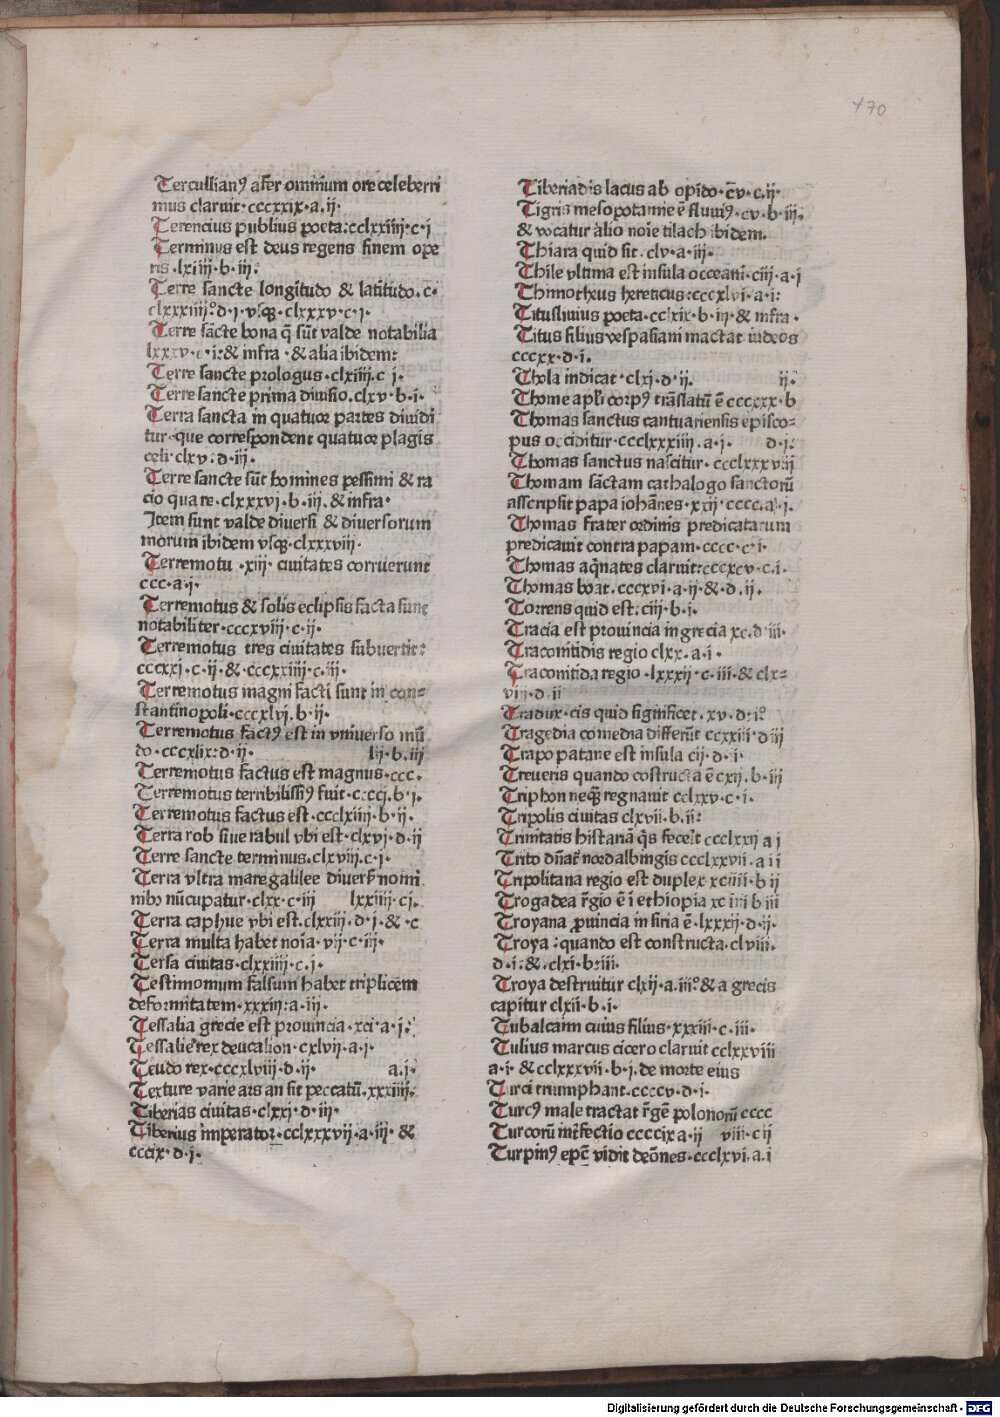 470
Tercullianꝰ afer ominium ore celeberri
mus claruit·cccxxix·a·ij·
Terencius publius poeta:cclxxiiij·c·i
Terminus est deus regens finem ope
ris·lxiiij·b·iij:
Terre sancte longitudo & latitudo·c·
clxxxiiij·d·i·vsqꝫ·clxxxv·c·i·
Terre sācte bona q̄ sūt valde notabilia
lxxxv·c·i:& infra·& alia ibidem:
Terre sancte prologus·clxiiij.c i·
Terre sancte prima diuisio.clxv·b·i·
Terra sancta in quatuor partes diuidi
tur·que correspondent quatuor plagis
celi·clxv:d·iij·
Terre sancte sūt homines pessimi & ra
cio quare·clxxxvi·b·iij·& infra·
Item sunt valde diuersi & diuersorum
morum ibidem vsqꝫ·clxxxviij·
Terremotu·xiij·ciuitates corruerunt
ccc·a·i·
Terremotus & solis eclipsis facta sunt
notabiliter·cccxviij·c·ij·
Terremotus tres ciuitates subuertit:
cccxxi·c·ij·&·cccxxiiij·c·iij·
Terremotus magni facti sunt in con=
stantinopoli·cccxlvj.b·ij·
Terremotus factꝰ est in vniuerso mū
do·cccxlix:d·ij· lij·b.iij
Terremotus factus est magnus·ccc.
Terremotus terribilissiꝰ fuit·ccccj.b·i·
Terremotus factus est·ccclxiiij·b·ij·
Terra rob siue rabul vbi est·clxvj·d·ij
Terre sancte terminus.clxviij.c·i·
Terra vltra mare galilee diuers̄ nomi
nibꝰ nūcupatur·clxx·c·iij lxxiiij·cj.
Terra caphue vbi est.clxxiij·d·i·&·c
Terra multa habet noīa·vij·c·iij·
Tersa ciuitas·clxxiiij·c.i·
Testimonium falsum habet triplicem
deformitatem·xxxij:a·iij·
Tessalia grecie est prouincia·xci·a·i·
Tessalie rex deucalion·cxlvij·a·i·
Teudo rex·cccxlviij·d·ij· a.i·
Texture varie ars an sit peccatū.xxxiiij·
Tiberias ciuitas·clxxi·d·iij·
Tiberius imperator·cclxxxvij·a·iij·&
cccix·d·i·
Tiberiadis lacus ab opido·cv·c.ij·
Tigris mesopotamie ē fluuiꝰ·cv·b·iij.
& vocatur alio noīe tilach ibidem.
Thiara quid sit.clv·a·iij·
Thile vltima est insula occeani·ciij·a·i
Thimotheus hereticus:cccxlvi·a·i:
Tituslimus poeta·cclxix·b·iij·& infra·
Titus filius vespasiani mactat iudeos
cccxx·d·i.
Thola indicat·clxj·d·ij. ij·
Thome apl'i corpꝰ trāslatū ē ccccxxx·b
Thomas sanctus cantuariensis episco=
pus occiditur·ccclxxxiiij·a·i· d·i:
Thomas sanctus nascitur·ccclxxxviij
Thomam sāctam cathalogo sanctorū
asscripsit papa iohānes·xxij·cccc.a·i.
Thomas frater ordinis predicatarum
predicauit contra papam·cccc·c·i·
Thomas aq̄nates claruit:cccxcv·c.i·
Thomas boat.cccxvi·a·ij·&·d.ij.
Torrens quid est:ciij·b·i.
Tracia est prouincia in grecia xc.d·iij·
Traconitidis regio clxx.a·i·
Traconitida regio·lxxxij·c·iij·& clx=
viij·d·ij
Tradux·cis quid significet.xv·d:i·
Tragedia comedia differūt ccxxiij·d iij
Trapo patane est insula cij·d·i·
Treueris quando costructa ē cxij.b·iij
Triphon neqꝫ regnauit cclxxv·c·i·
Tripolis ciuitas clxvij.b.ij:
Trinitatis histariā q̄s fecerit ccclxxij a i
Trito dn̄at̄ nordalbingis ccclxxvij.a i i
Tripolitana regio est duplex xciiij·b ij
Trogadea r̄gio ē i ethiopia xc iiij b iij
Troyana p̄uincia in siria ē·lxxxij·d·ij·
Troya:quando est constructa.clviij.
d·i:&.clxi·b:iij.
Troya destruitur clxij·a.iij·& a grecis
capitur clxij·b·i.
Tubalcaim cuius filius·xxxiij·c·iij·
Tulius marcus cicero claruit cclxxviij
a·i·& cclxxxvij·b·i.de morte eius
Turci triumphant.ccccv·d·i·
Turcꝰ male tractat r̄gē polonorū cccc
Turcorū interfectio ccccix a·ij viij·c ij
Turpinꝰ epc̄ vidit deōnes·ccclxvi.a.i
Digitalisierung gefördert durch die Deutsche Forschungsgemeinschaft - DFG